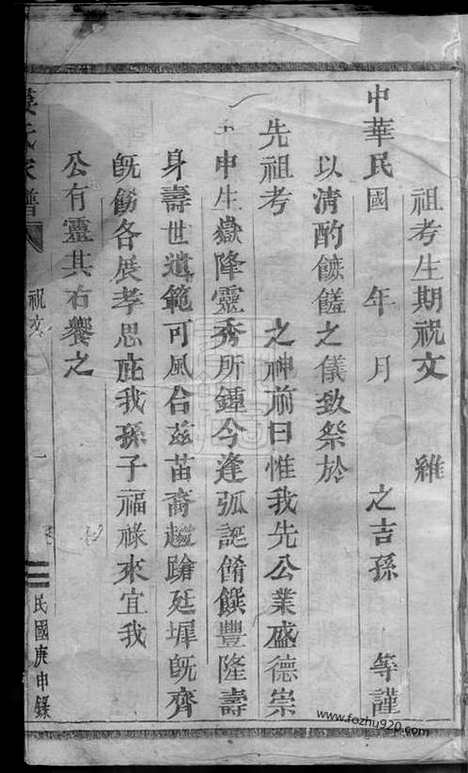 祖考生期祝文　維
中華民國　年　月　之吉孫　等謹
以清酌饙饈之儀致祭於
先祖考　之神前曰惟我先公業盛德崇
申生嶽降靈秀所鍾今逢弧誕餚饌豐隆壽
身壽世遺範可風合茲苗裔趨蹌廷墀既齊
既飭各展孝思庇我孫子福祿來宜我
公有靈其右饗之
氏家譜
祝文
一
民國庚申錄
www.fozhu920.com